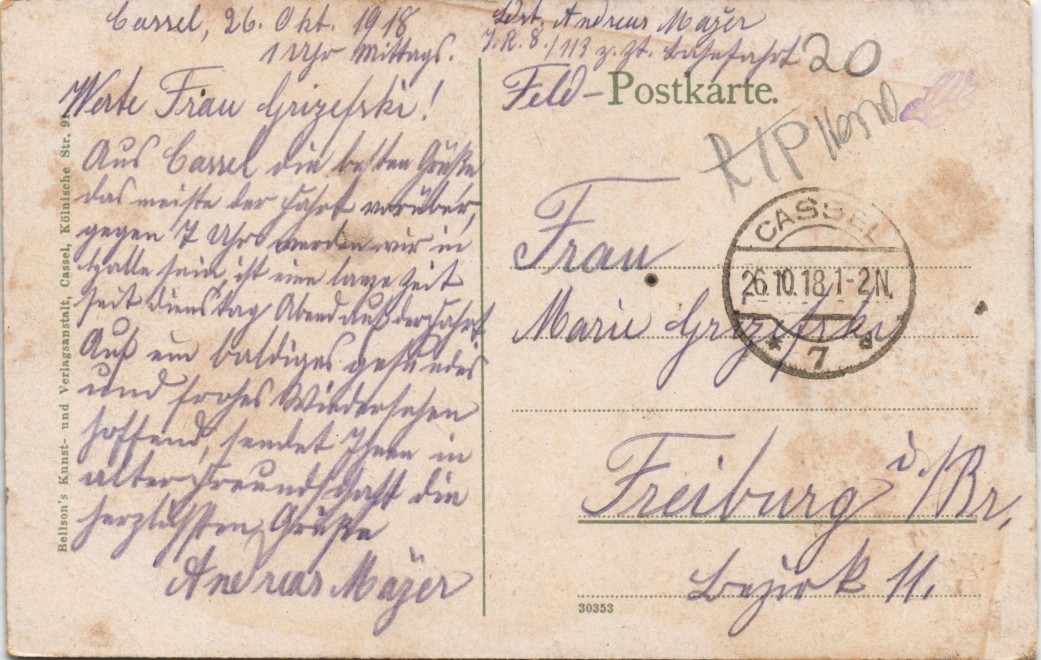 Cassel, 26. Okt. 1918
1 Uhr Mittags.
Werte Frau Grizefski!
Aus Cassel die besten Grüße
das meiste der Fahrt vorüber,
gegen 7 Uhr werden wir in
Halle sein, ist eine lange Zeit
seit Dienstag Abend auf der Fahrt.
Auf ein baldiges gesundes
und frohes Wiedersehen
hoffend, sendet Ihnen in
alter Freundschaft die
herzlichsten Grüße
Andreas Mayer
Ldst. Andreas Mayer
J.R. 8./113 z. Zt. Bahnfahrt
20
Feld-Postkarte.
CASSEL
26.10.18.1-2N.
* 7 d
Frau
Marie Grizefski
Freiburg i/Br.
Bezirk 11.
30353
Bellson's Kunst- und Verlagsanstalt, Cassel, Kölnische Str.